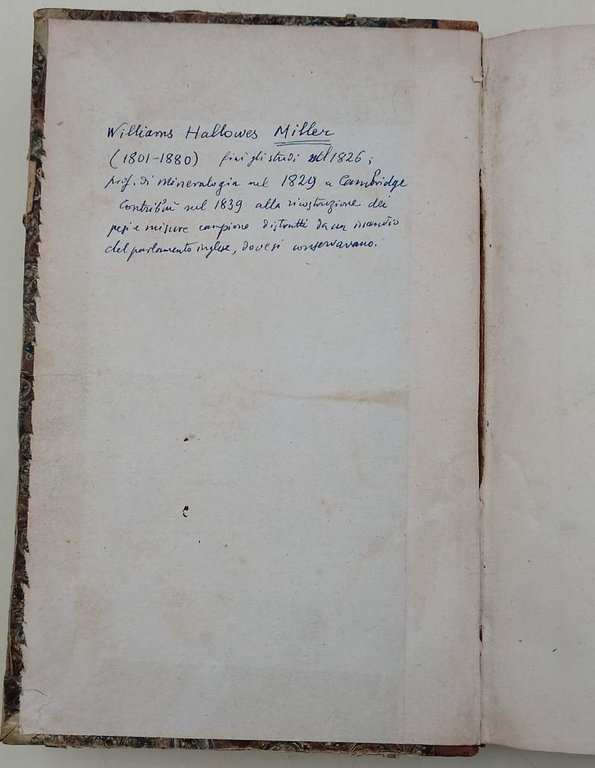 Williams Hallowes Miller
(1801-1880) finì gli studi nel 1826;
prof. di Mineralogia nel 1829 a Cambridge
Contribuì nel 1839 alla ricostruzione dei
pesi e misure campione distrutti da un incendio
del parlamento inglese, dove si conservavano.